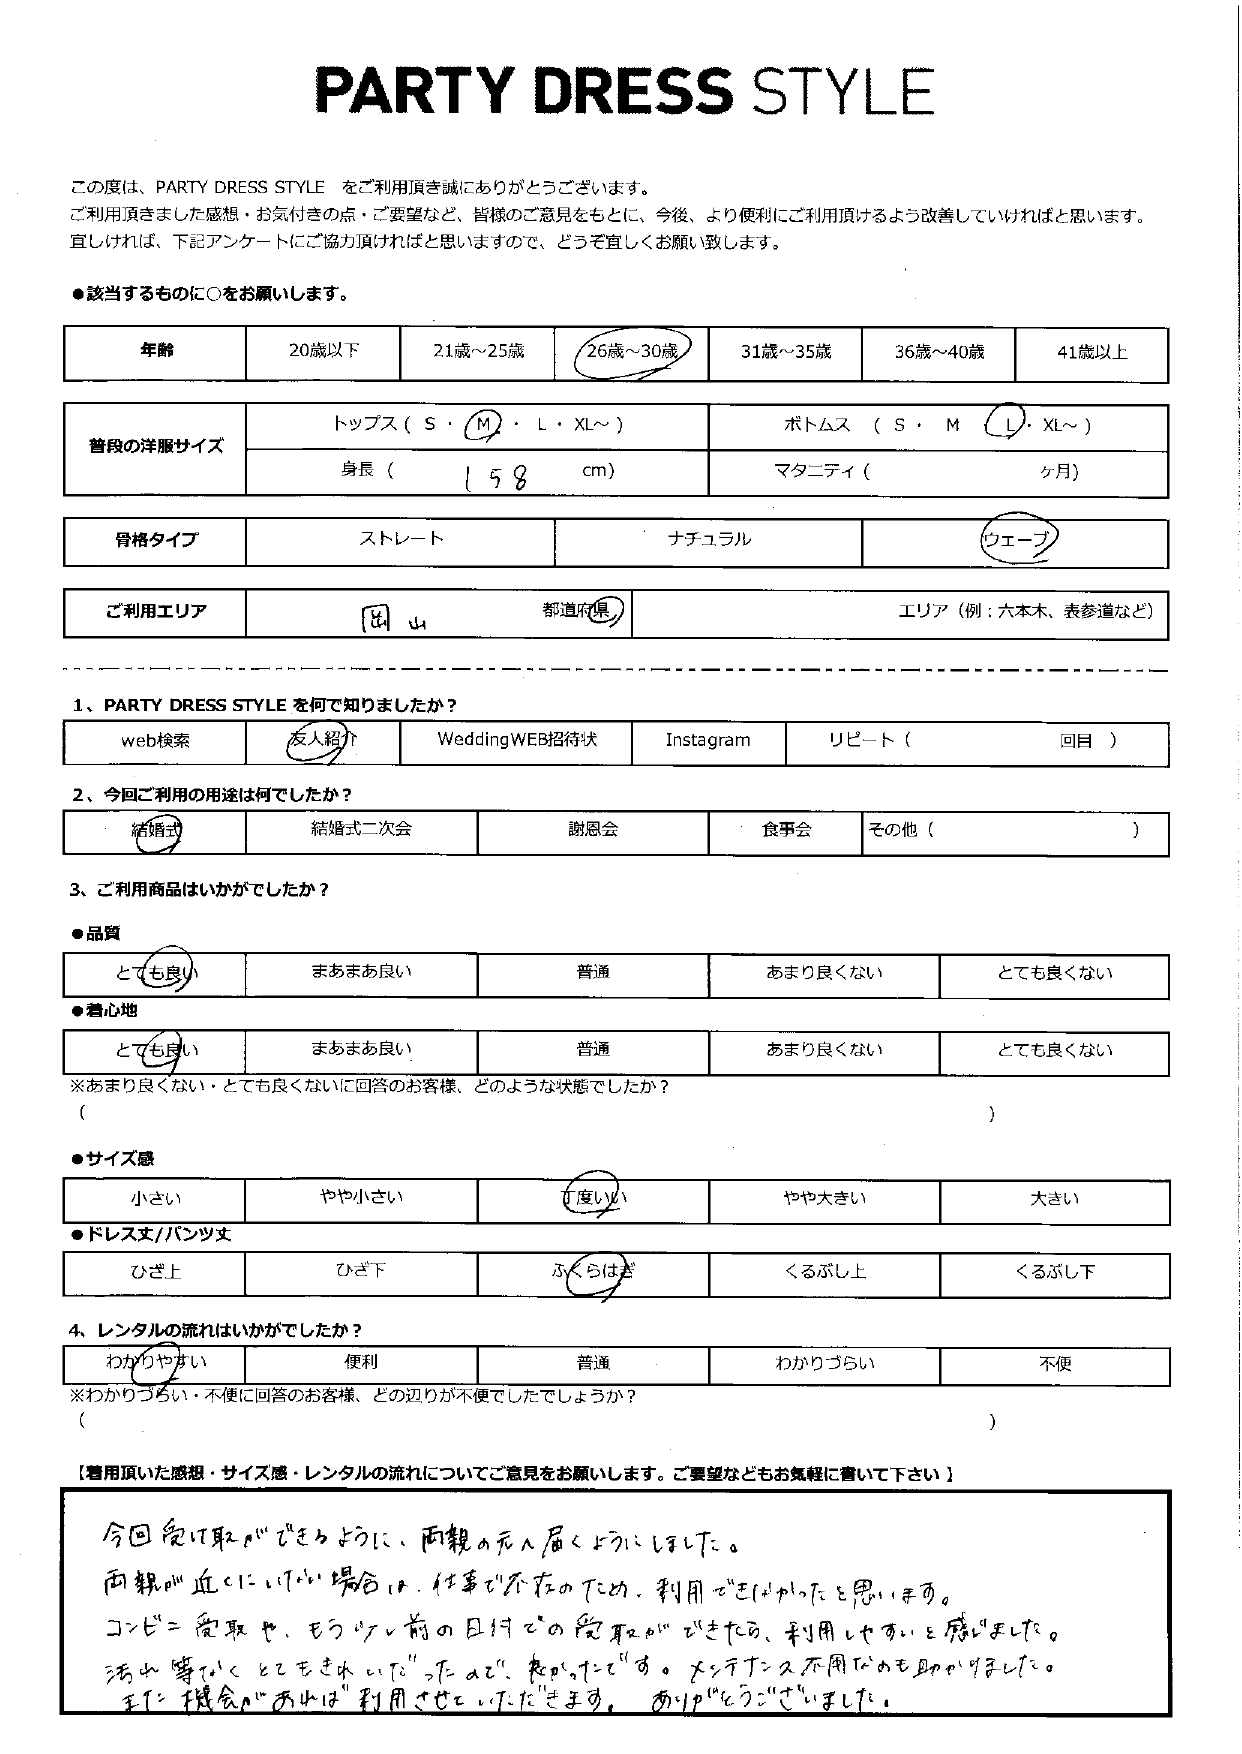 PARTY DRESS STYLE
この度は、PARTY DRESS STYLE　をご利用頂き誠にありがとうございます。
ご利用頂きました感想・お気付きの点・ご要望など、皆様のご意見をもとに、今後、より便利にご利用頂けるよう改善していければと思います。
宜しければ、下記アンケートにご協力頂ければと思いますので、どうぞ宜しくお願い致します。
●該当するものに○をお願いします。
年齢 20歳以下 21歳～25歳 26歳～30歳 31歳～35歳 36歳～40歳 41歳以上
普段の洋服サイズ トップス ( S ・ M ・ L ・ XL～ ) ボトムス ( S ・ M L ・ XL～ )
身長 ( 158 cm) マタニティ ( ヶ月)
骨格タイプ ストレート ナチュラル ウェーブ
ご利用エリア 岡山 都道府県 エリア（例：六本木、表参道など）
1、PARTY DRESS STYLE を何で知りましたか？
web検索 友人紹介 WeddingWEB招待状 Instagram リピート ( 回目 )
2、今回ご利用の用途は何でしたか？
結婚式 結婚式二次会 謝恩会 食事会 その他 ( )
3、ご利用商品はいかがでしたか？
●品質
とても良い まあまあ良い 普通 あまり良くない とても良くない
●着心地
とても良い まあまあ良い 普通 あまり良くない とても良くない
※あまり良くない・とても良くないに回答のお客様、どのような状態でしたか？
( )
●サイズ感
小さい やや小さい 丁度いい やや大きい 大きい
●ドレス丈/パンツ丈
ひざ上 ひざ下 ふくらはぎ くるぶし上 くるぶし下
4、レンタルの流れはいかがでしたか？
わかりやすい 便利 普通 わかりづらい 不便
※わかりづらい・不便に回答のお客様、どの辺りが不便でしたでしょうか？
( )
【着用頂いた感想・サイズ感・レンタルの流れについてご意見をお願いします。ご要望などもお気軽に書いて下さい 】
今回受け取りができるように、両親の元へ届くようにしました。
両親が近くにいない場合は、仕事で不在のため、利用できなかったと思います。
コンビニ受取や、もう少し前の日付での受取ができたら、利用しやすいと感じました。
汚れ等なくとてもきれいだったので、良かったです。メンテナンス不用なのも助かりました。
また機会があれば利用させていただきます。ありがとうございました。